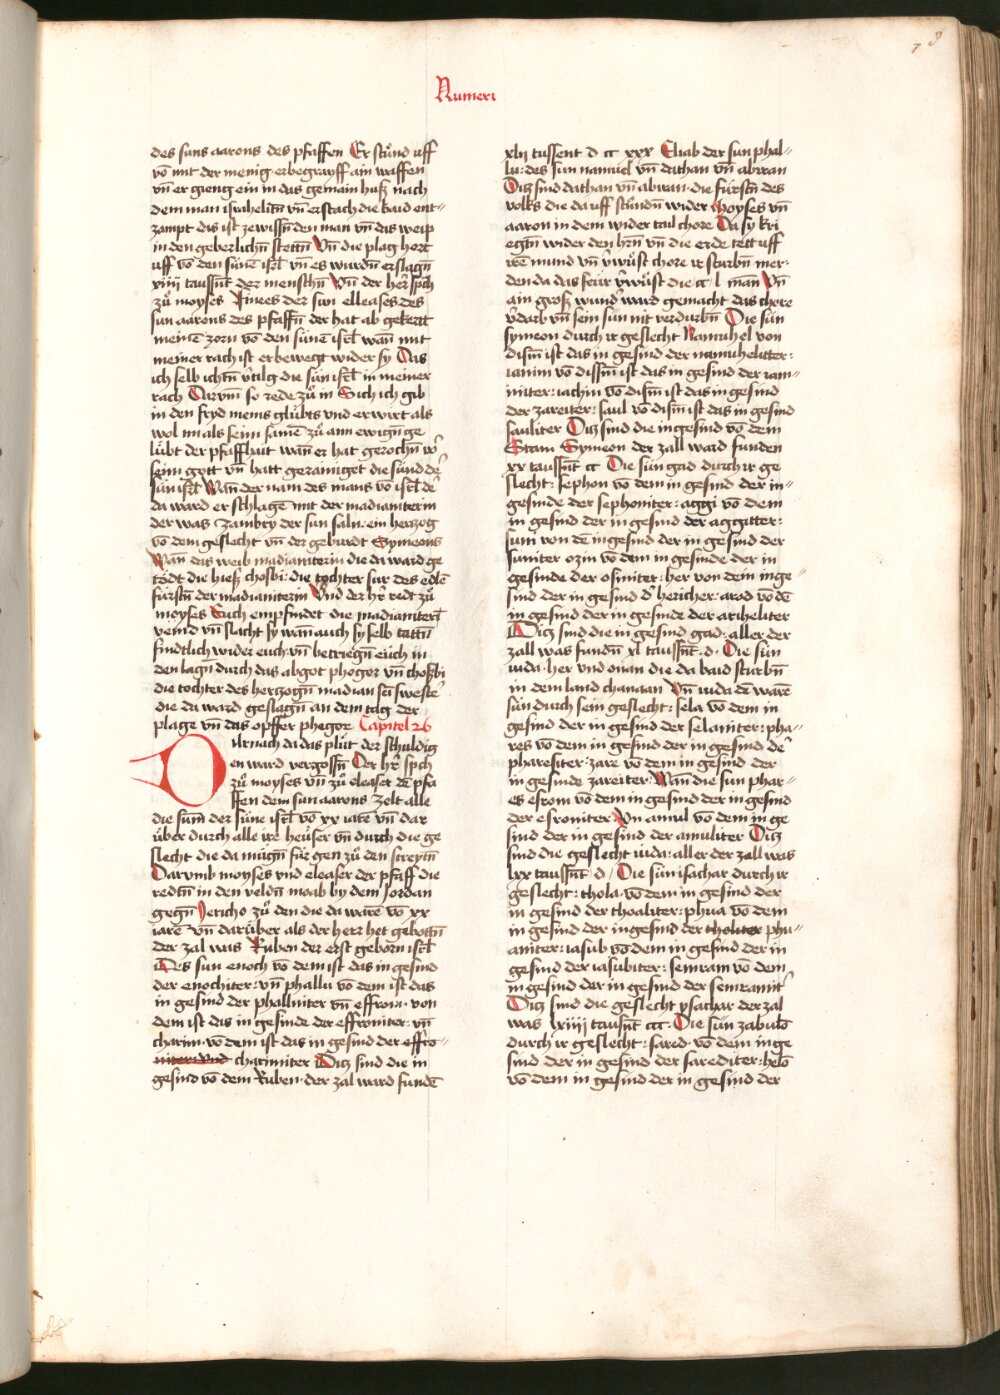 78
Numeri
des suns aarons des pfaffen Er stuͦnd uff
vō mit der menig er begrayff ain waffen
vn̄ er gieng ein in das gemain huß nach
dem man israhelitn̄ vn̄ erstach die baid ent-
zampt das ist ze wissn̄ den man vn̄ das weip
in den geberlichn̄ stettn̄ Vn̄ die plag hort
uff vō den sünē isrl̄ vn̄ es wurdn̄ erslagn̄
xiiij taussn̄t der menschn̄ Vn̄ der her̄ sp̄ch
zuͦ moyses Finees der sun elleasers des
sun aarons des pfaffn̄ der hat ab gekertt
meinē zorn vō den sünē isrl̄ wan̄ mit
meiner rach ist er bewegt wider sy Das
ich selb ichtn̄ v̄tilg die sün isrl̄ in meiner
rach Darum̄ so rede zuͦ im Sich ich gib
in den fryd meins glübts vnd er wirt als
wol im als seim̄ samē zuͦ ainn ewign̄ ge
lübt der pfaffhait wan̄ er hat gerochn̄ vō
seim̄ gott vn̄ hatt gerainiget die sünd dē
sün isrl̄ Wan̄ der nam des mans vō isrl̄ dē
da ward erschlagē mit der madianiterin
der was zambry der sun salu: ein herzog
vō dem geslecht vn̄ der gebürdt Symeons
Wan̄ das weib madianiterin die da ward ge
tödt die hieß chosbi: die tochter sur des edlē
fürstn̄ der madianiterin Vnd der hr̄ redt zuͦ
moyses Euch empfindet die madianiterī
veind vn̄ slacht sy wan auch sy selb tattn̄
findtlich wider euch vn̄ betriegn̄ eüch in
den lagn̄ durch das abgot phogor vn̄ choßbi
die tochter des hertzogn̄ madian ir swestē
die da ward geslagn̄ an dem tag der
plage vn̄ das opffer phegor Capitel 26
Darnach da das pluͦt der schuldig
en ward vergossn̄ Der hr̄ sp̄ch
zuͦ moyses vn̄ zuͦ eleaser dē pfa
ffen dem sun aarons zelt alle
die sum̄ der sünē isrl̄ vō xx iarē vn̄ dar
über durch alle ire heüser vn̄ durch die ge
slecht die da mügn̄ für gen zuͦ den streytn̄
Darumb moyses vnd eleaser der pfaff die
redtn̄ in den veldn̄ moab by dem Jordan
gegn̄ Jericho zuͦ den die da warē vō xx
iarē vn̄ darüber als der herr het gebottn̄
der zal was Ruben der erst geborn isrl̄
Des sun enoch vō dem ist das in gesind
der enochiter: vn̄ phallu vō dem ist das
in gesind der phalluiter vn̄ effron. von
dem ist das in gesinde der effroniter. vn̄
charim. vō dem ist das in gesind der effro-
niter vnd charimiter Ditz sind die in
gesind vō dem Ruben. der zal ward fundē
xliij tussent d cc xxx Eliab der sun phal-
lu: des sun namuel vn̄ dathan vn̄ abyran
Ditz sind dathan vn̄ abiran. die fürstn̄ des
volks die da uff stündn̄ wider Moyses vn̄
aaron in dem wider tail chore Da sy kri
egtn̄ wider den hr̄n vn̄ die erde tett uff
irē mund vn̄ v̄wüst chore ir sturbn̄ mer.
den da das feür v̄wüst die cc l man̄ Vn̄
ain groß wund' ward gemacht das chore
v̄darb vn̄ sein sün nit verdurbn̄ Die sün
symeon durch ir geslecht Namuhel von
disn̄ ist das in gesind der namuheliter:
iamin vō dissn̄ ist das in gesind der iam-
initer: iachin vō disn̄ ist das in gesind
der zareiter: saul vō disn̄ ist das in gesind
sauliter Ditz sind die in gesind vō dem
Stam Symeon der zall ward funden
xx taussn̄t cc Die sün gad durch ir ge
slecht: sephon vō dem in gesind der in-
gesinde der sephoniter: aggi vō dem
in gesind der in gesind der aggitter:
suni von dē in gesind der in gesind der
suniter ozin vō dem in gesinde der in
gesinde der osiniter: her von dem in ge-
sind der in gesind d' hericher: arod vō dē
in gesind der in gesinde der ariheliter
Ditz sind die in gesind gad: aller der
zall was fundn̄ xl taussn̄t. d. Die sün
iuda. her vnd onan die da baid sturbn̄
in dem land chanaan Vn̄ iuda dē warē
sün durch sein geslecht: sela vō dem in
gesind der in gesind der selaniter: pha-
res vō dem in gesind der in gesind dē
pharesiter: zare vō dem in gesind der
in gesinde zareiter: Wan̄ die sun phar-
es esrom vō dem in gesind der in gesind
der esromiter Vn amul vō dem in ge
sind der in gesind der amuliter Ditz
sind die geslecht iuda: aller der zall was
lxx taussn̄t d / Die sün isachar durch ir
geslecht: thola. vō dem in gesind der
in gesind der thoaliter: phua vō dem
in gesind der in gesind der tholiter phu-
aniter: iasub vō dem in gesind der in
gesind der iasubiter: semram vō dem
in gesind der in gesind der semramit'
Ditz sind die geslecht ysachar der zal
was lxiiij tausn̄t ccc. Die sün zabulō
durch ir geslecht: sared. vō dem in ge
sind der in gesind der sarediter: helō
vō dem in gesind der in gesind der